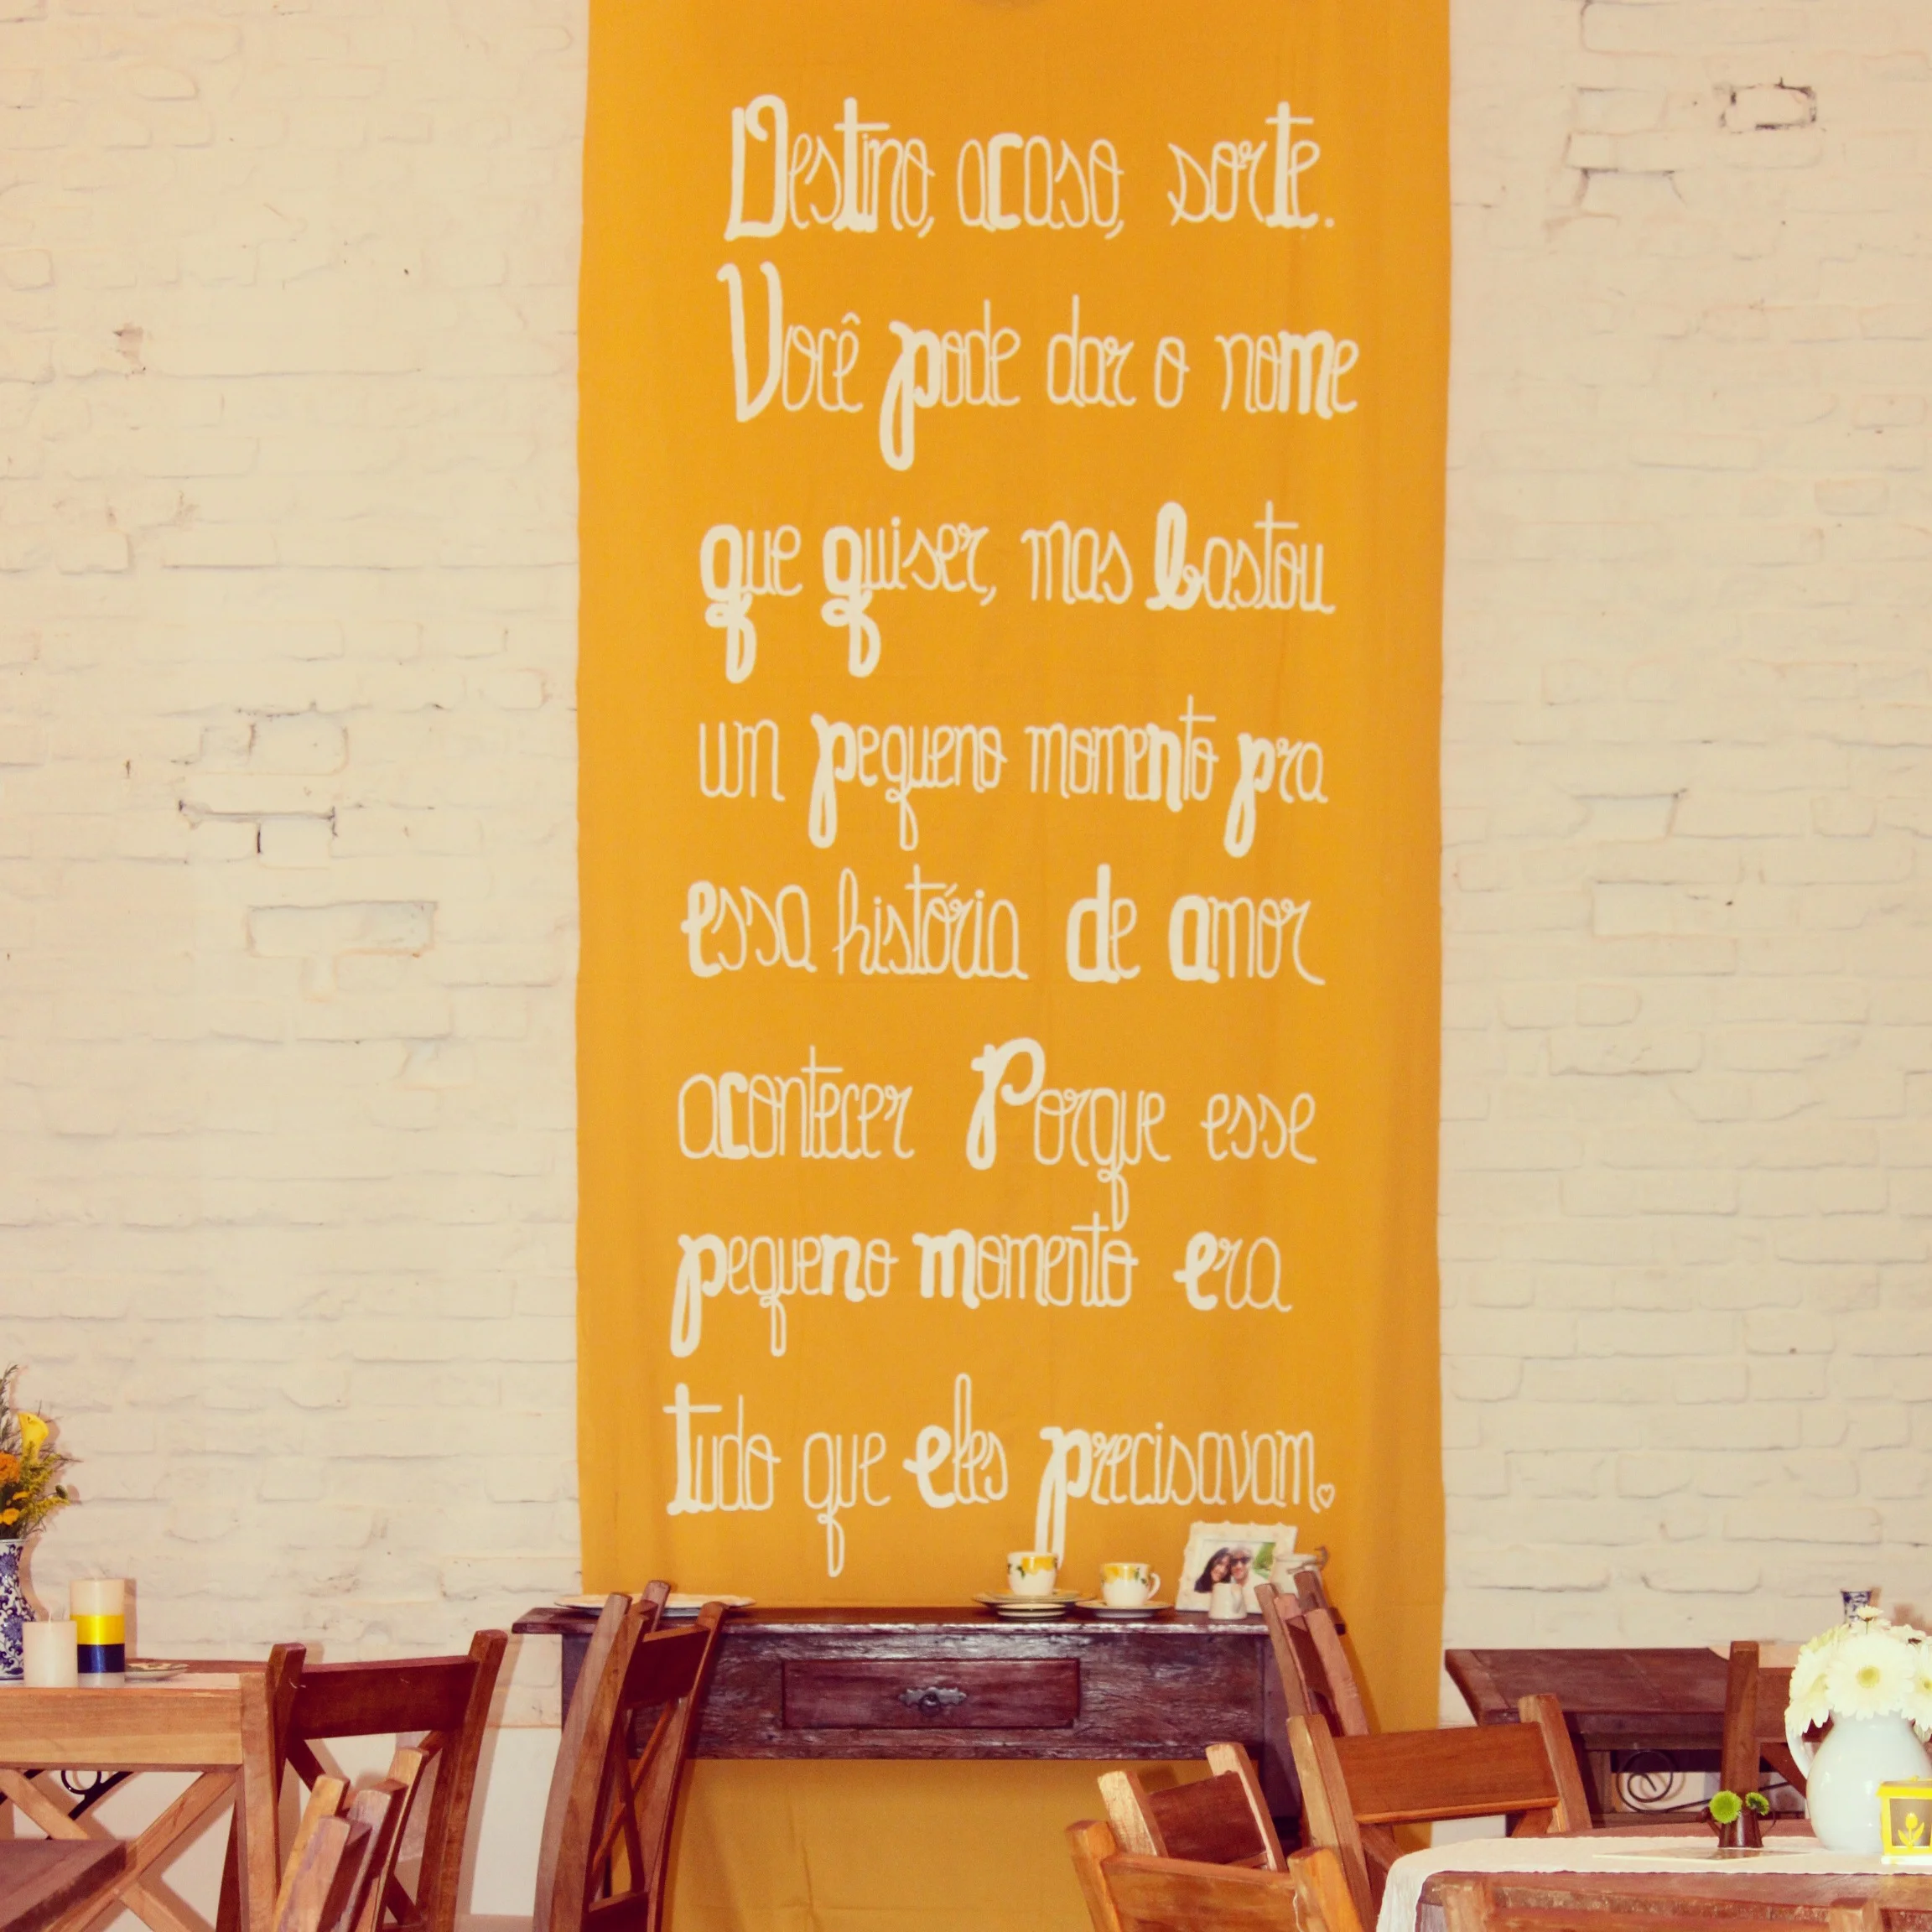 Destino, acaso, sorte.
Você pode dar o nome
que quiser, mas bastou
um pequeno momento pra
essa história de amor
acontecer Porque esse
pequeno momento era
tudo que eles precisavam.